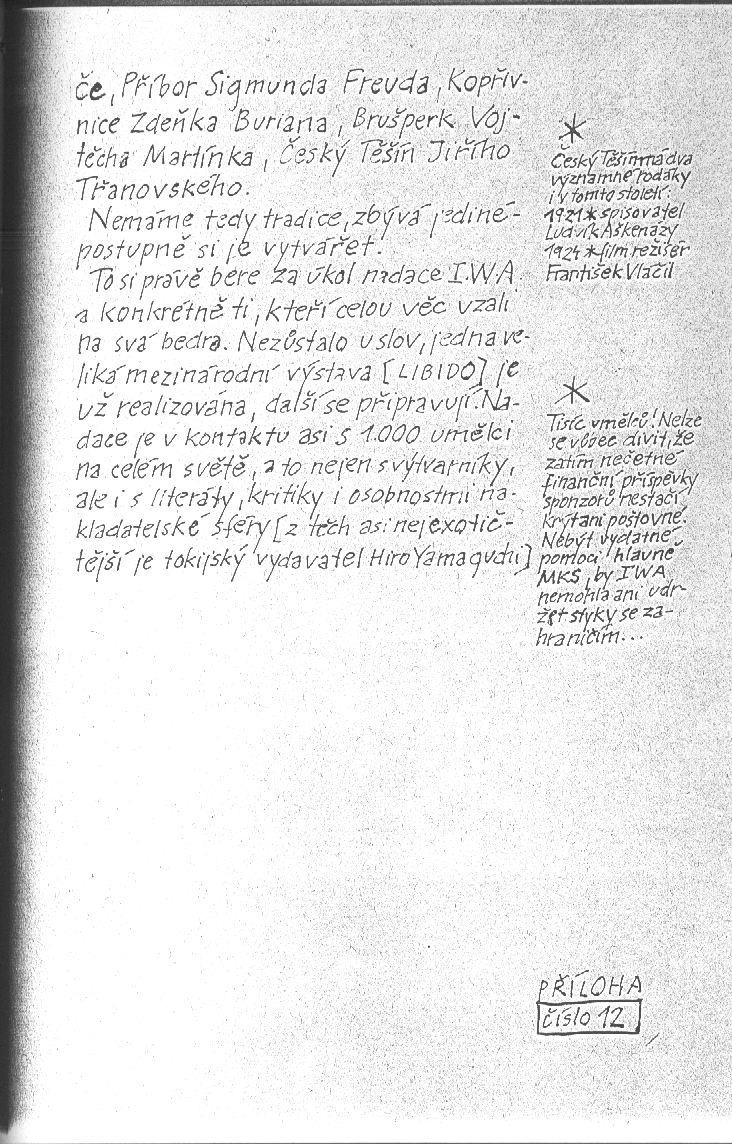 če, Příbor Sigmunda Freuda, Kopřiv-
nice Zdeňka Buriana, Brušperk Voj-
těcha Martínka, Český Těšín Jiřího
Třanovského.
Nemáme tedy tradice, zbývá jediné -
postupně si je vytvářet.
To si právě bere za úkol nadace I.W.A.
a konkrétně ti, kteří celou věc vzali
na svá bedra. Nezůstalo u slov, jedna ve-
liká mezinárodní výstava [LIBIDO] je
už realizována, další se připravují. Na-
dace je v kontaktu asi s 1.000 umělci
na celém světě, a to nejen s výtvarníky,
ale i s literáty, kritiky i osobnostmi na-
kladatelské sféry [z těch asi nejexotič-
tější je tokijský vydavatel Hiro Yamaguchi]
*
Český Těšín má dva
významné rodáky
i v tomto století:
1921 * spisovatel
Ludvík Aškenázy
1924 * film. režisér
František Vláčil
*
Tisíc umělců! Nelze
se vůbec divit, že
zatím nečetné
finanční příspěvky
sponzorů nestačí
krýt ani poštovné.
Nebýt vydatné
pomoci hlavně
MKS, by IWA
nemohla ani udr-
žet styky se za-
hraničím...
PŘÍLOHA
číslo 12